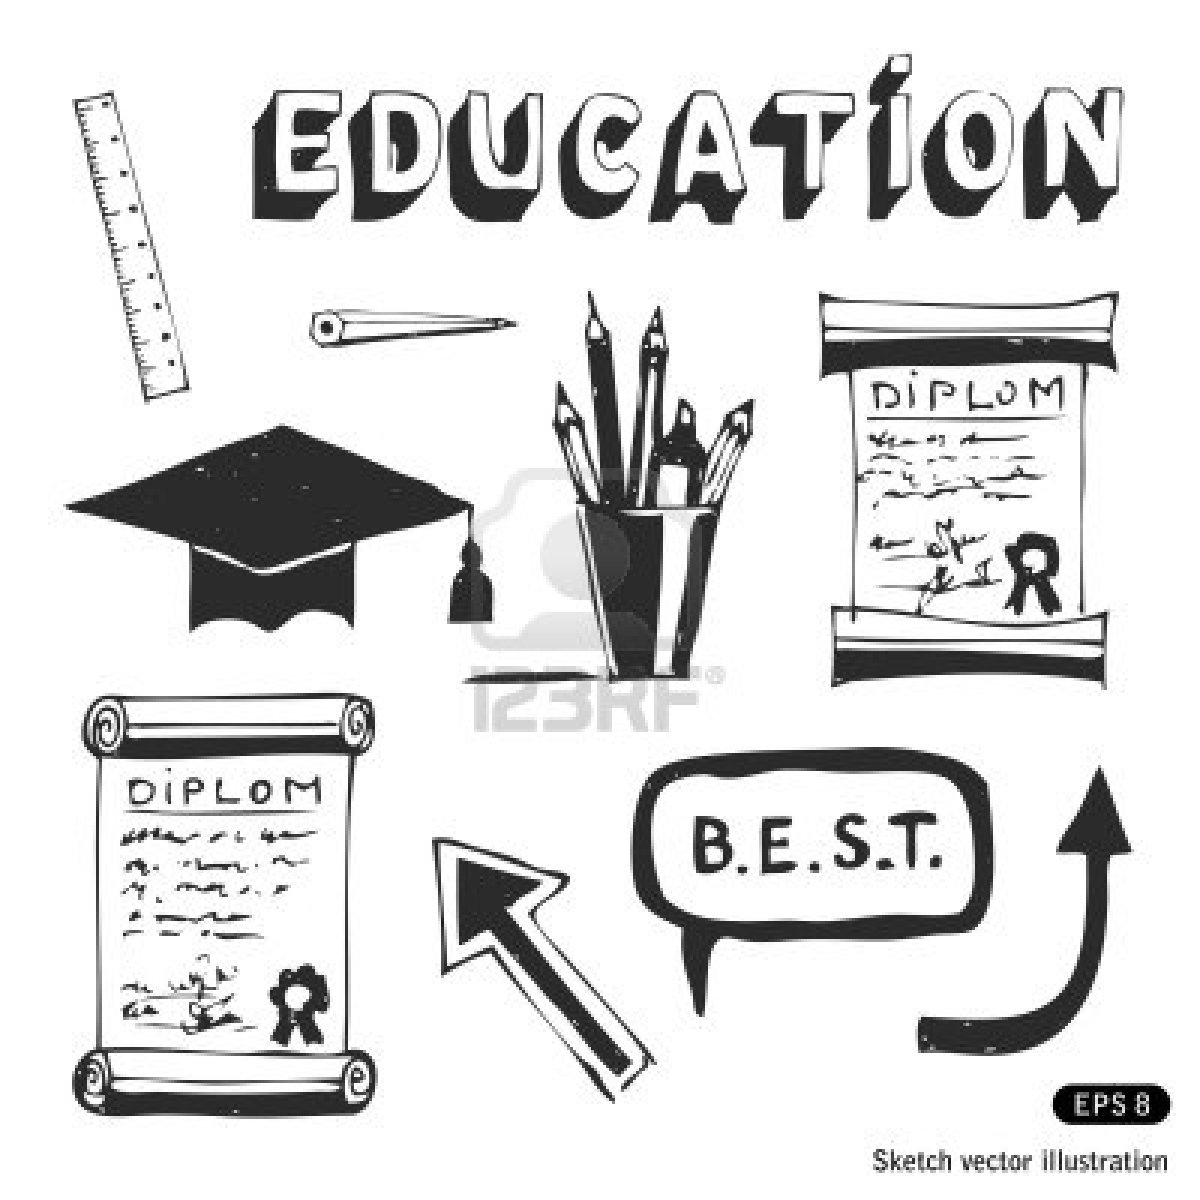 EDUCATiON
DiPLOM
123RF®
DiPLOM
B.E.S.T.
EPS 8
Sketch vector illustration